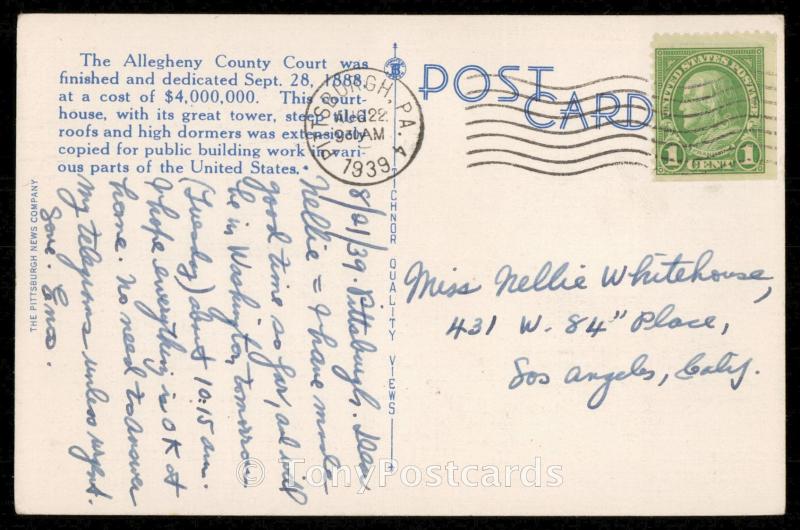 The Allegheny County Court was
finished and dedicated Sept. 28, 1888,
at a cost of $4,000,000. This Court-
house, with its great tower, steep tiled
roofs and high dormers was extensively
copied for public building work in vari-
ous parts of the United States.
POST CARD
PITTSBURGH, PA. 4
AUG 22
930 AM
1939
UNITED STATES POSTAGE
FRANKLIN
1 CENT 1
TICHNOR QUALITY VIEWS
THE PITTSBURGH NEWS COMPANY
8/21/39. Pittsburgh. Dear
Nellie = I have made
good time so far, and will
be in Washington tomorrow
(Tuesday) about 10:15 am.
I hope everything is OK at
home. No need to answer
my telegrams unless urgent.
Love.
Miss Nellie Whitehouse,
431 W. 84" Place,
Los Angeles, Calif.
© TonyPostcards